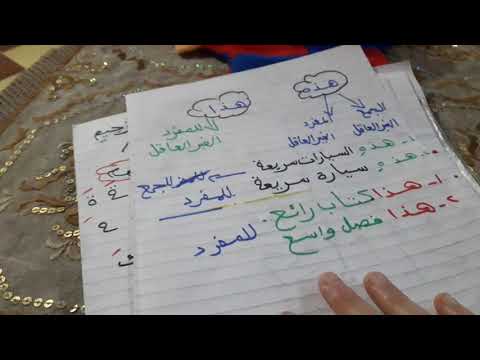 هذا
هذه
للمفرد
الغير العاقل
مفرد
الغير العاقل
الجمع
الغير العاقل
١- هذه السيارات سريعة للجمع
هذه سيارة سريعة للمفرد
١- هذا كتاب رائع.
٢- هذا فصل واسع
للمفرد